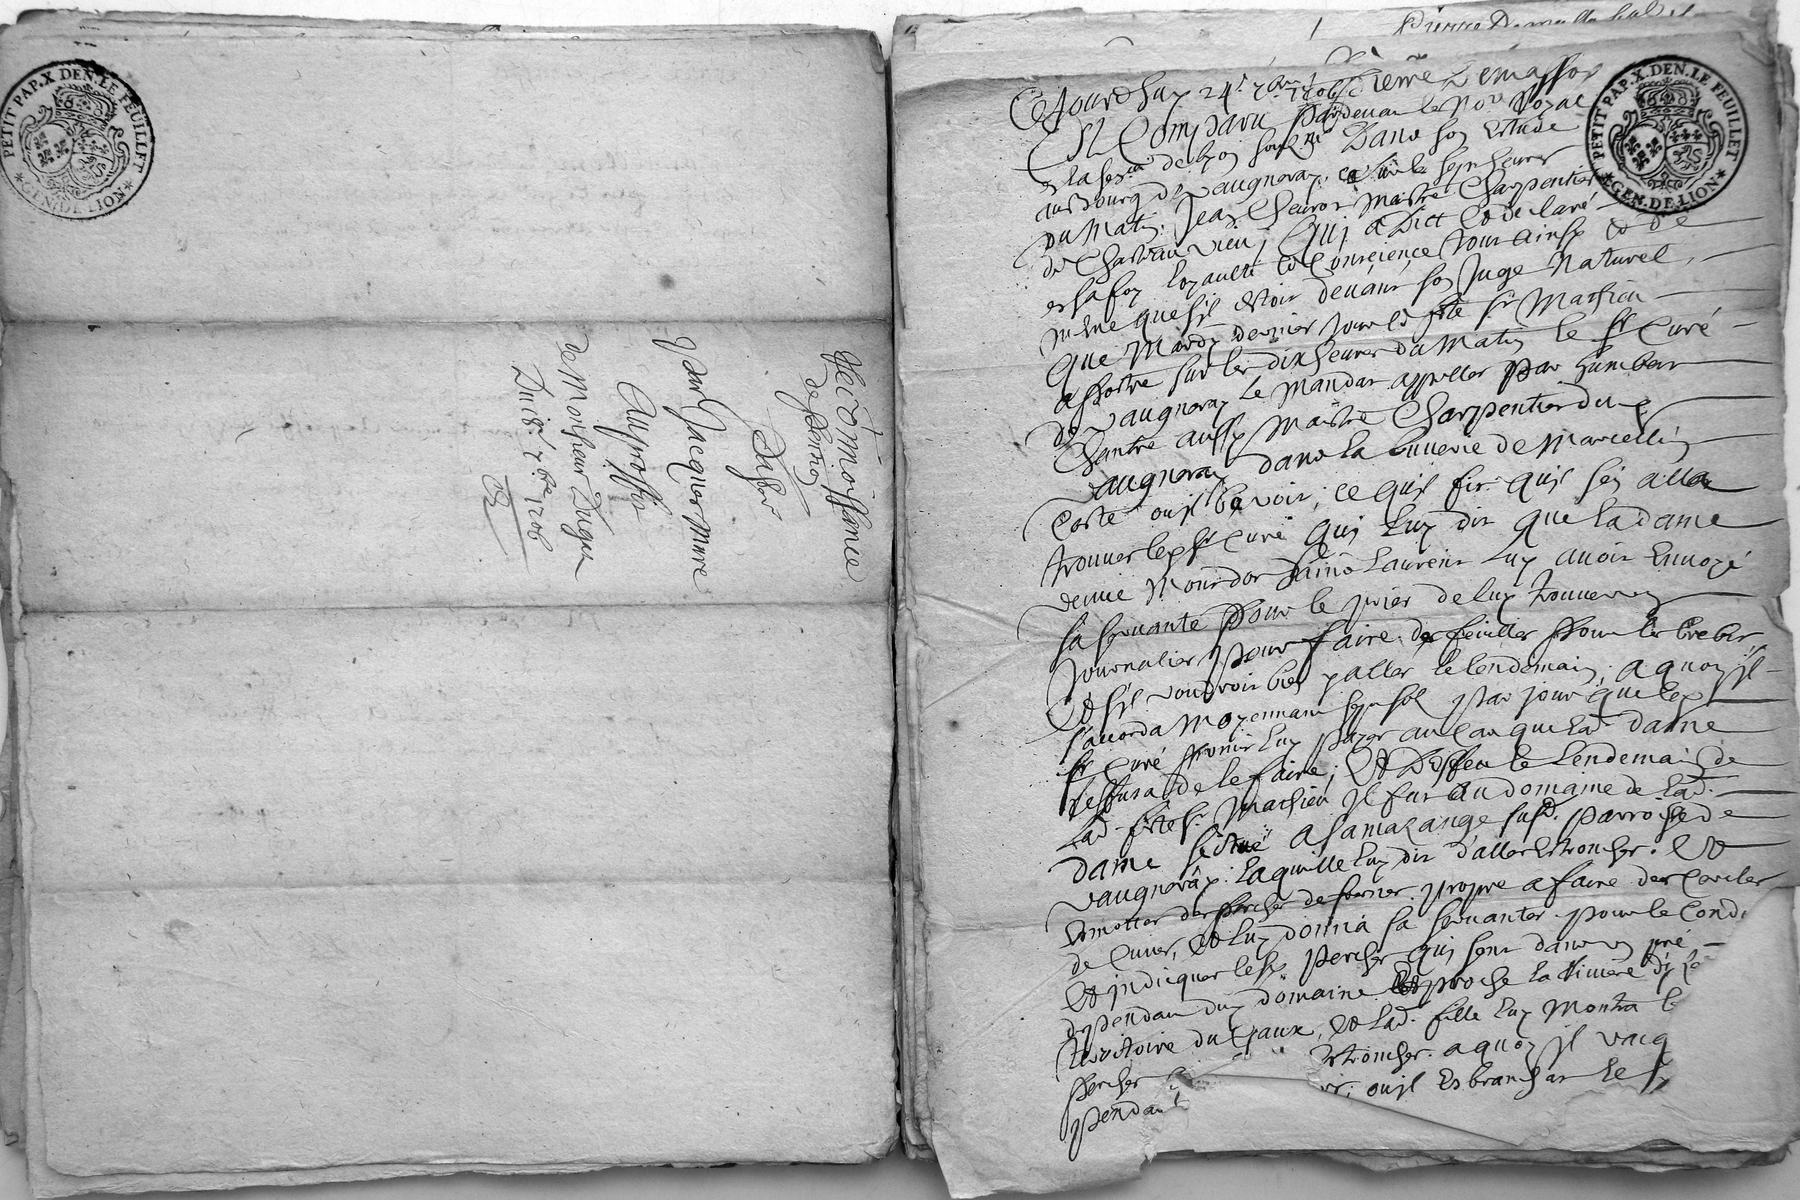 PETIT PAP. X. DEN. LE FEUILLET
GEN. DE LION
Recognoissance
de pention
Jean Jacques Mure
Au proffit
de Monsieur Dugue
Du 18e 7bre 1706
PETIT PAP. X. DEN. LE FEUILLET
GEN. DE LION
Pierre
Ce Jourdhuy 24e 7bre 1706
Est Comparu pardevant le Nore Royal
en la senee de Lyon soubzne Dans son Estude
au bourg de vaugneray, sept heures
du Matin, Jean Maistre Charpentier
de Chasteau vieu, Qui a Dict et declaré
en sa foy Loyaulté et Conscience tout ainsy et de
mesme que sil estoit devant son Juge Naturel,
Que Mardy dernier jour et feste st Mathieu
apostre sur les dix heures du Matin le sr Curé
de vaugneray le Mandat appeller par humbert
Chantre aussy Maistre Charpentier dud
vaugneray dans la de Marcellin
Coste ou il bevoit, ce quil fit quil sen alla
trouver led sr Curé Qui Luy dit Que La dame
veuve Mourdor Saint Laurent Luy avoit Envoyé
sa servante Pour le prier de luy trouver un
Journalier pour faire des feuilles Pour les brebis
Et sil voudroit bien y aller le lendemain, a quoy il
saccorda Moyennant sept sols par jour que led
sr Curé promit Luy payer au Cas que lad dame
reffusa de le faire, Et De faict le Lendemain de
Lad feste st Mathieu Il fut Au domaine de Lad
dame scitué A Samazange susd Parroisse de
vaugneray. Laquelle Luy dit d'aller Estroncher Et
Esmotter des perches propre a faire des Cercles
de Cuves, Et Luy donna sa servante pour le Cond
Et indiquer lesd perches qui sont dans un pré
dependant dud domaine proche la Riviere
territoire du Et Lad fille Luy Montra
perches Estroncher. a quoy il vacq
pendant ou il Esbranchat le